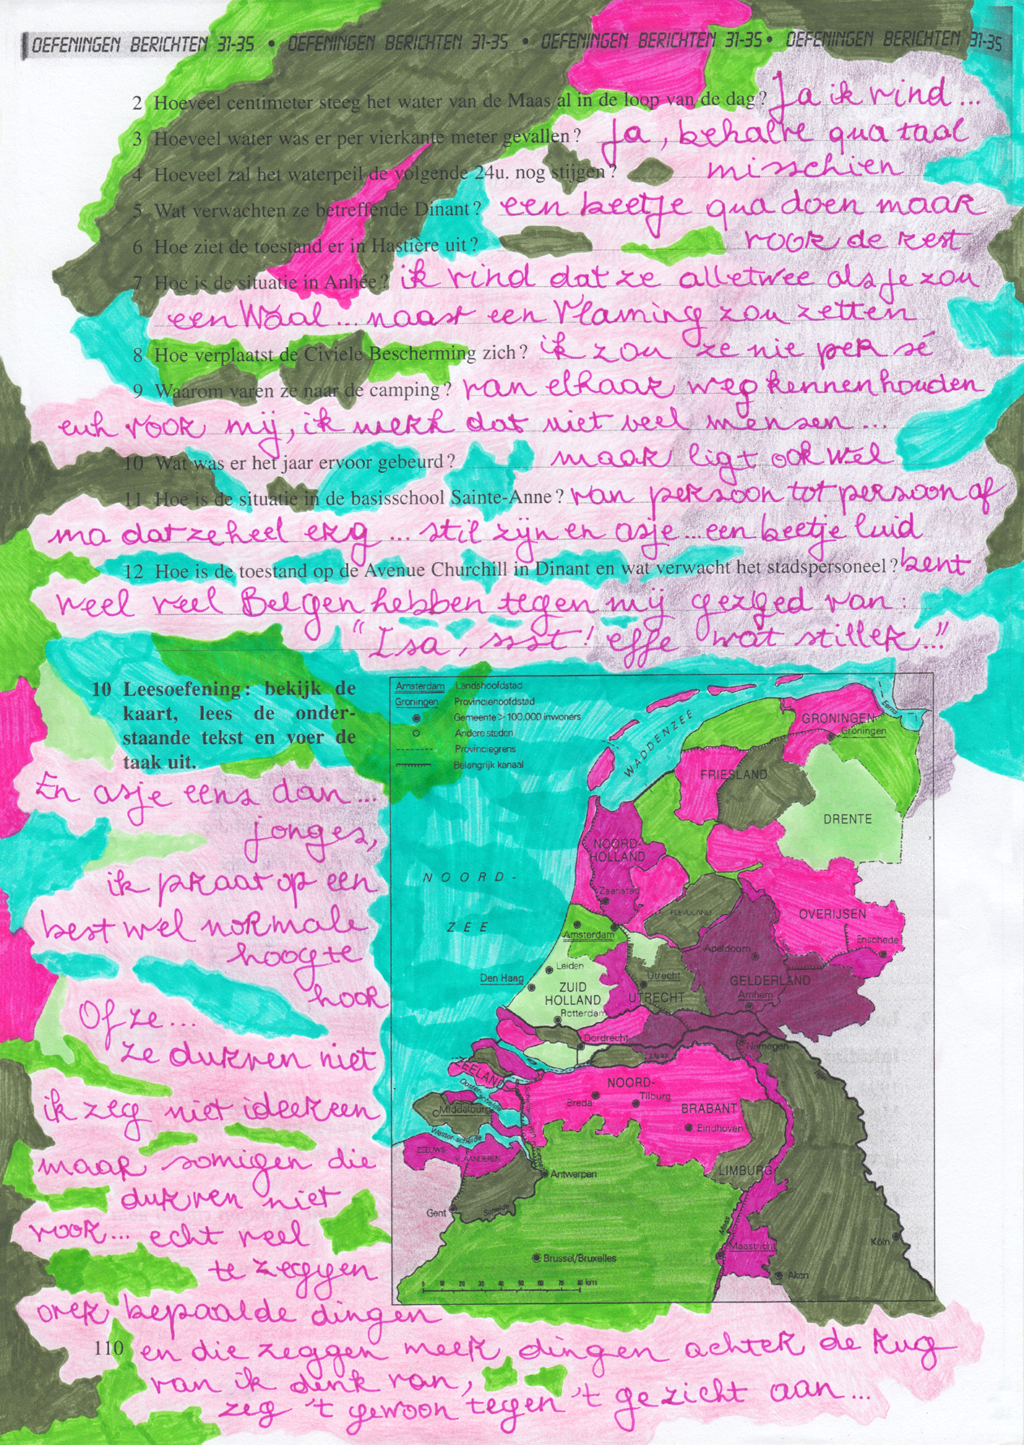 OEFENINGEN BERICHTEN 31-35 • OEFENINGEN BERICHTEN 31-35 • OEFENINGEN BERICHTEN 31-35 • OEFENINGEN BERICHTEN 31-35
2 Hoeveel centimeter steeg het water van de Maas al in de loop van de dag? Ja ik vind...
3 Hoeveel water was er per vierkante meter gevallen? Ja, behalve qua taal
4 Hoeveel zal het waterpeil de volgende 24u. nog stijgen? misschien
5 Wat verwachten ze betreffende Dinant? een beetje qua doen maar
6 Hoe ziet de toestand er in Hastière uit? voor de rest
7 Hoe is de situatie in Anhée? ik vind dat ze alletwee als je zou
een Waal... naast een Vlaming zou zetten
8 Hoe verplaatst de Civiele Bescherming zich? ik zou ze nie per sé
9 Waarom varen ze naar de camping? van elkaar weg kennen houden
euh voor mij, ik merk dat niet veel mensen...
10 Wat was er het jaar ervoor gebeurd? maar ligt ook wel
11 Hoe is de situatie in de basisschool Sainte-Anne? van persoon tot persoon af
ma dat ze heel erg... stil zijn en asje... een beetje luid
12 Hoe is de toestand op de Avenue Churchill in Dinant en wat verwacht het stadspersoneel? bent
weel veel Belgen hebben tegen mij gezegd van:
"Isa, ssst! effe wat stiller..."
10 Leesoefening: bekijk de
kaart, lees de onder-
staande tekst en voer de
taak uit.
En asje eens dan...
jonges,
ik praat op een
best wel normale
hoogte
hoor
Of ze...
ze durven niet
ik zeg niet idereen
maar somigen die
durven niet
voor... echt veel
te zeggen
over bepaalde dingen
110 en die zeggen meer dingen achter de rug
van ik denk van,
zeg 't gewoon tegen 't gezicht aan...
Amsterdam Landshoofdstad
Groningen Provinciehoofdstad
Gemeente > 100.000 inwoners
Andere steden
Provinciegrens
Belangrijk kanaal
WADDENZEE
Eems
GRONINGEN
Groningen
FRIESLAND
DRENTE
NOORD-
HOLLAND
Zaanstad
NOORD-
ZEE
FLEVOLAND
OVERIJSEN
Enschede
Amsterdam
Apeldoorn
Leiden
Den Haag
Utrecht
GELDERLAND
ZUID
HOLLAND
UTRECHT
Arnhem
Rotterdam
Dordrecht
Nijmegen
ZEELAND
NOORD-
BRABANT
Breda
Tilburg
Middelburg
Eindhoven
ZEEUWS
VLAANDEREN
LIMBURG
Antwerpen
Gent
Maas
Maastricht
Köln
Brussel/Bruxelles
Aken
0 10 20 30 40 50 60 70 80 kms